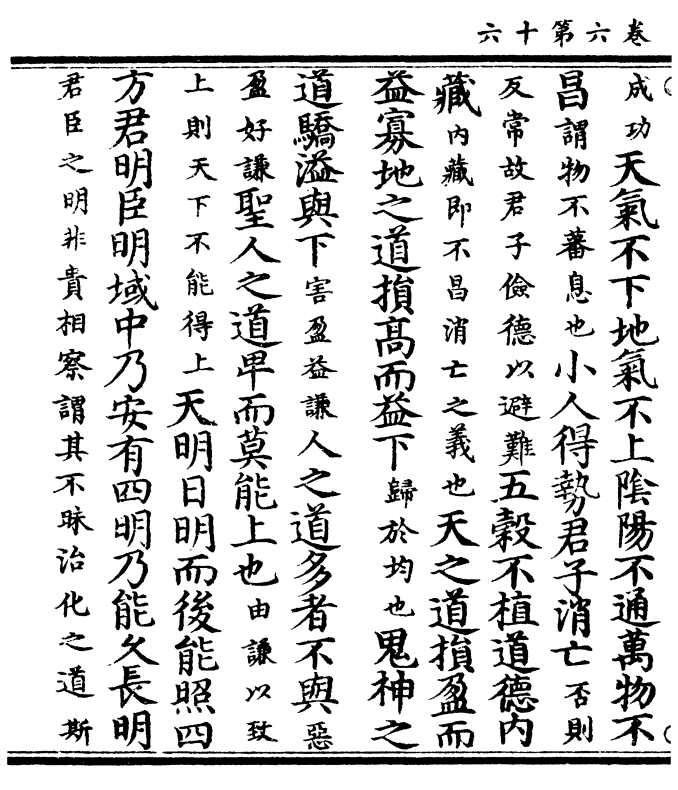 卷六第十六
成功天氣不下地氣不上陰陽不通萬物不
昌謂物不蕃息也小人得勢君子消亡否則
反常故君子儉德以避難五穀不植道德內
藏內藏即不昌消亡之義也天之道損盈而
益寡地之道損高而益下歸於均也鬼神之
道驕溢與下害盈益謙人之道多者不與惡
盈好謙聖人之道卑而莫能上也由謙以致
上則天下不能得上天明日明而後能照四
方君明臣明域中乃安有四明乃能久長明
君臣之明非貴相察謂其不昧治化之道斯